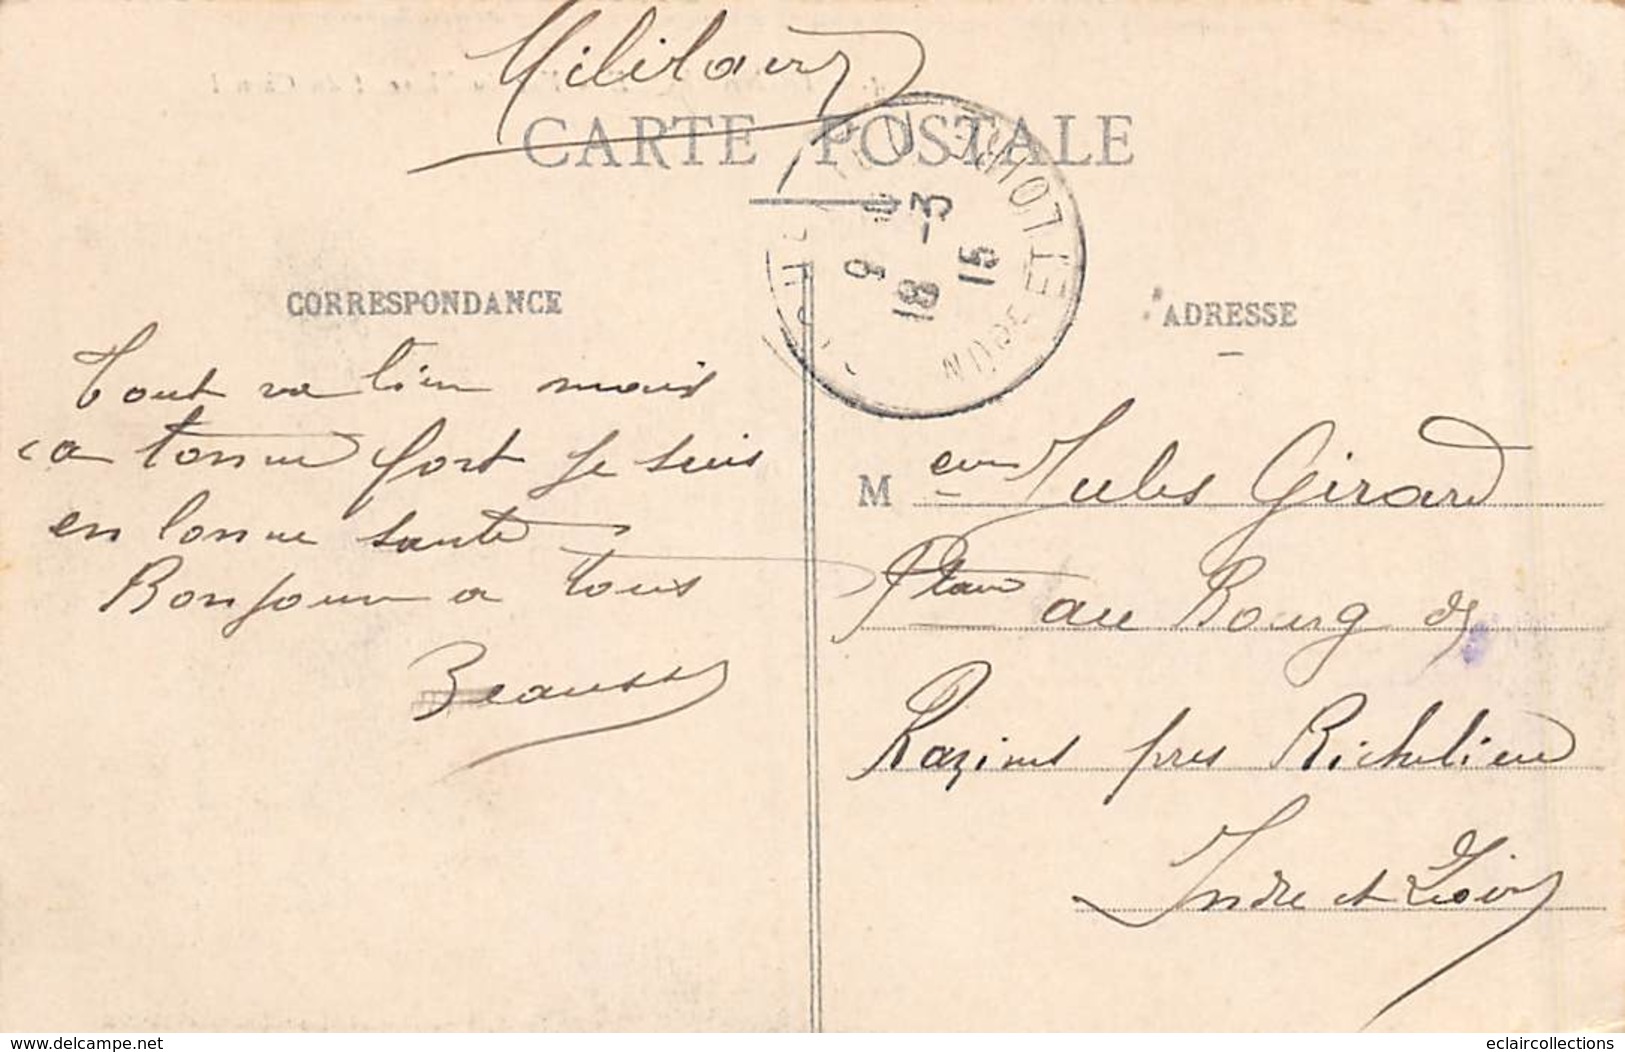 Militaire
CARTE POSTALE
CORRESPONDANCE
ADRESSE
Tout va bien mais
ca tonne fort je suis
en bonne santé
Bonjour a tous
9
18 -3
15
M eur Jules Girard
au Bourg de
Razines pres Richelieu
Indre et Loire
delcampe.net
eclaircollections